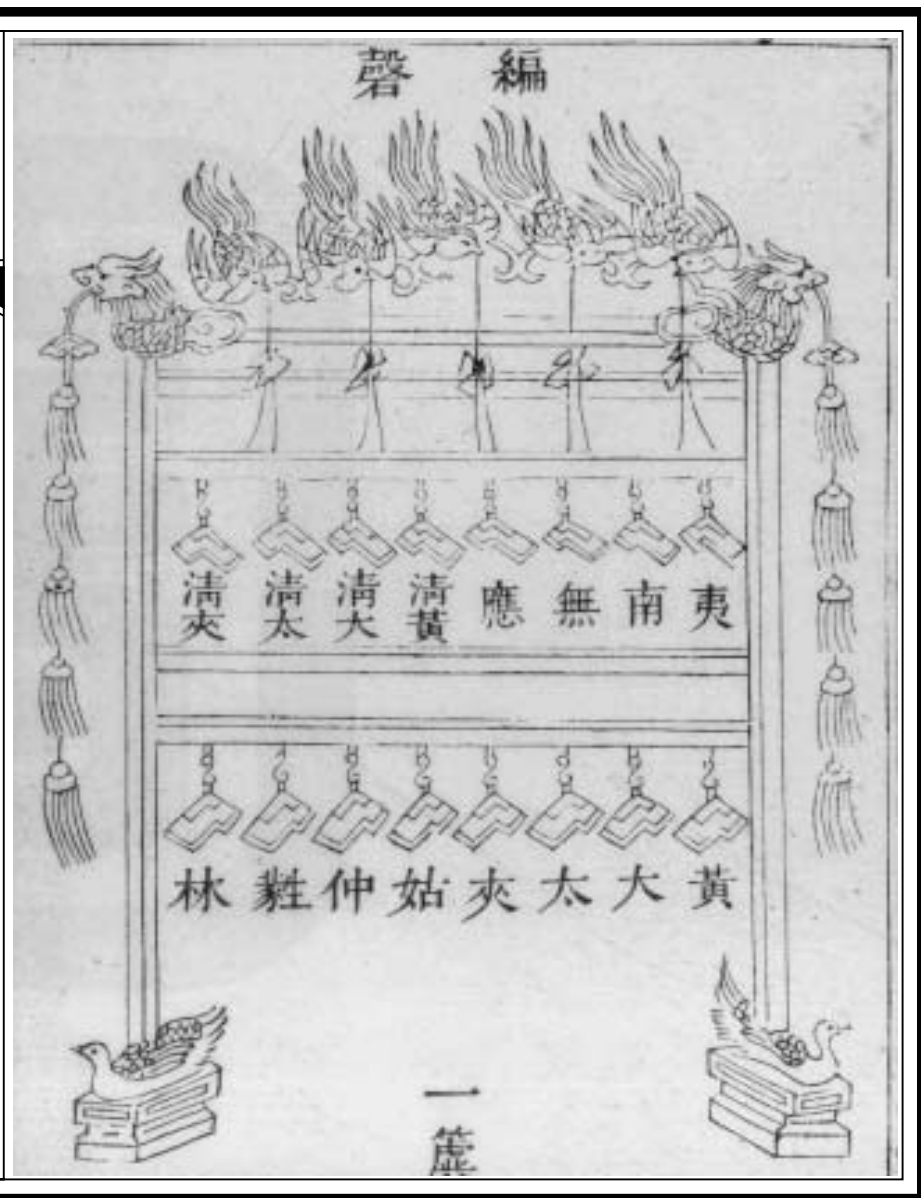 編磬
夷 南 無 應 清黃 清大 清太 清夾
黃 大 太 夾 姑 仲 甤 林
一